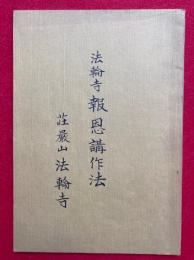 法輪寺報恩講作法
荘厳山法輪寺